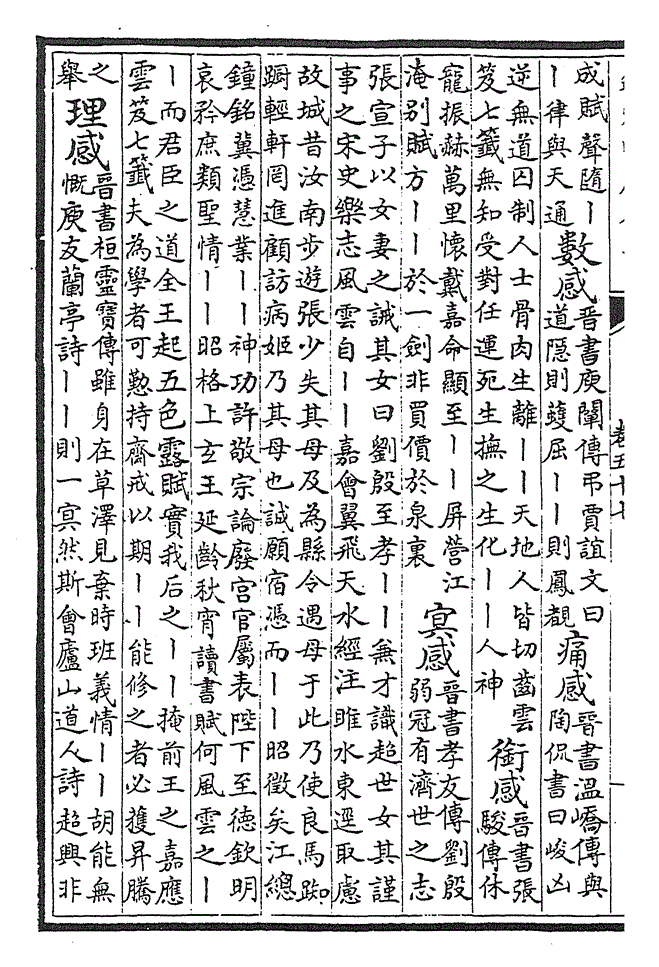 成賦聲隨丨
丨律與天通
數感
晉書庾闡傳弔賈誼文曰
道隱則蠖屈丨丨則鳳覩
痛感
晉書溫嶠傳與
陶侃書曰峻凶
逆無道囚制人士骨肉生離丨丨天地人皆切齒雲
笈七籤無知受對任運死生撫之生化丨丨人神
銜感
晉書張
駿傳休
寵振赫萬里懷戴嘉命顯至丨丨屏營江
淹别賦方丨丨於一劍非買價於泉裏
冥感
晉書孝友傳劉殷
弱冠有濟世之志
張宣子以女妻之誡其女曰劉殷至孝丨丨兼才識超世女其謹
事之宋史樂志風雲自丨丨嘉會翼飛天水經注睢水東逕取慮
故城昔汝南步遊張少失其母及為縣令遇母于此乃使良馬踟
蹰輕軒罔進顧訪病姬乃其母也誠願宿憑而丨丨昭徵矣江總
鐘銘冀憑慧業丨丨神功許敬宗論廢宫官屬表陛下至德欽明
哀矜庶類聖情丨丨昭格上玄王延齡秋宵讀書賦何風雲之丨
丨而君臣之道全王起五色露賦實我后之丨丨掩前王之嘉應
雲笈七籤夫為學者可懃持齋戒以期丨丨能修之者必獲昇騰
之
舉
理感
晉書桓靈寶傳雖身在草澤見棄時班義情丨丨胡能無
慨庾友蘭亭詩丨丨則一冥然斯會廬山道人詩超興非